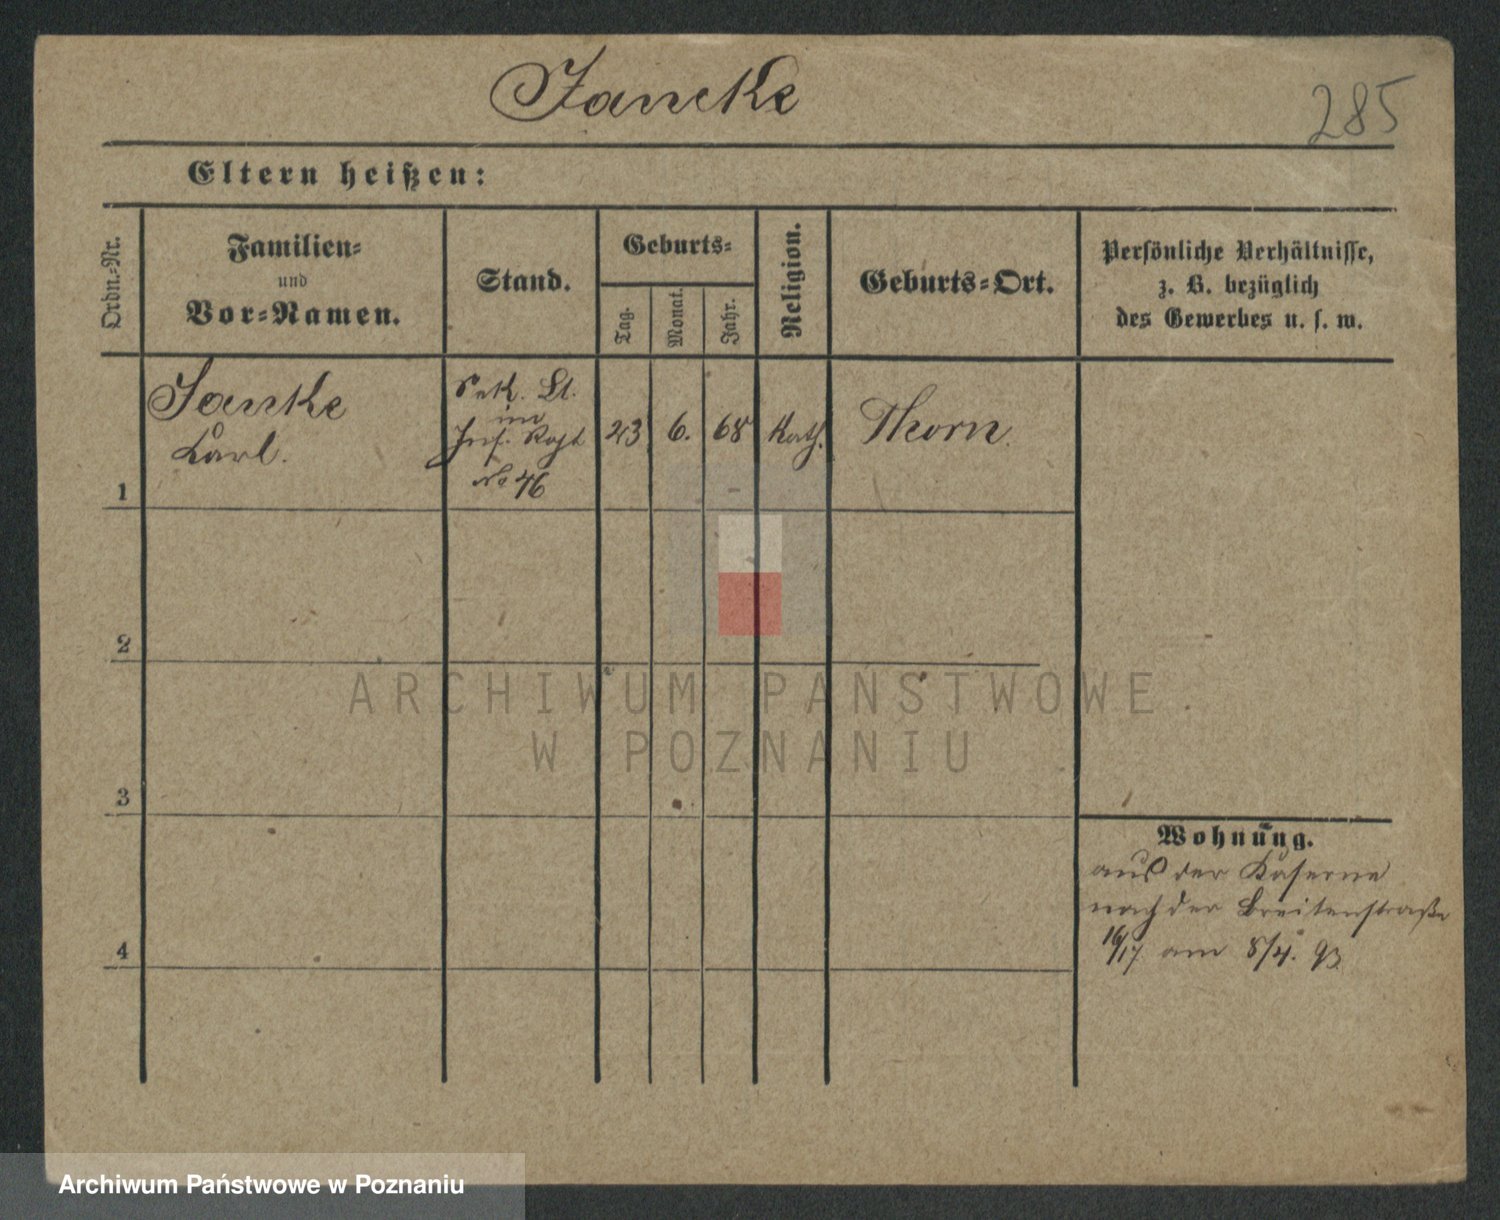 Jancke
285
Eltern heißen:
Ordn.-Nr.
Familien-
und
Vor-Namen.
Stand.
Geburts-
Tag.
Monat.
Jahr.
Religion.
Geburts-Ort.
Persönliche Verhältnisse,
z. B. bezüglich
des Gewerbes u. s. w.
1
Jancke
Carl.
Sek. Lt.
im
Inf. Rgt
No 46
23
6.
68
Kath.
Thorn.
2
3
4
Wohnung.
aus der Kaserne
nach der Breitenstraße
16/17 am 8/4. 93
ARCHIWUM PAŃSTWOWE
W POZNANIU
Archiwum Państwowe w Poznaniu